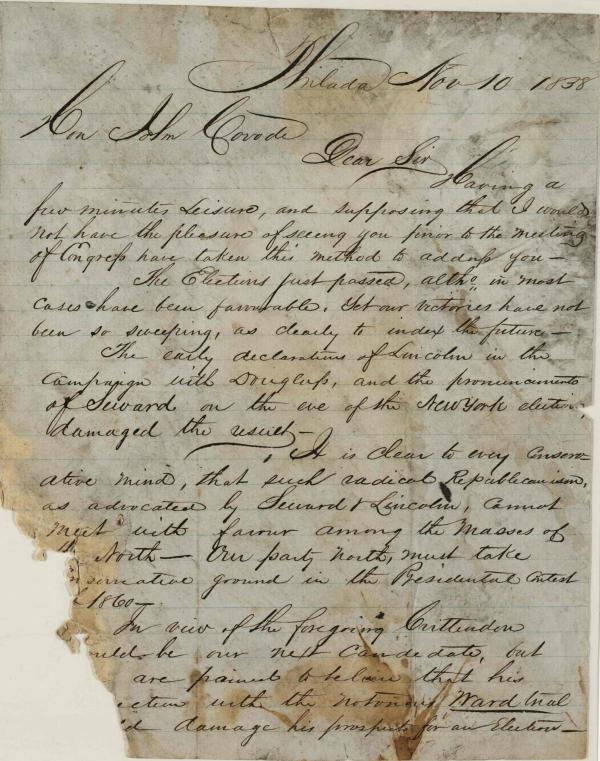 Philada Nov 10 1858
Hon John Covode
Dear Sir
Having a
few minutes Leisure, and supposing that I would
not have the pleasure of seeing you prior to the meeting
of Congress have taken this method to address you—
The Elections just passed, altho" in most
cases have been favourable. Yet our victories have not
been so sweeping, as clearly to index the future—
The early declarations of Lincoln in the
Campaign with Douglass, and the pronuncimento
of Seward on the eve of the New York election,
damaged the result—
It is clear to every Conserv-
ative mind, that such radical Republicanism,
as advocated by Seward & Lincoln, Cannot
meet with favour among the Masses of
North— Our party North, must take
nservative ground in the Presidental Contest
1860—
In view of the foregoing Crittendon
uld be our next Candedate, but
are pained to believe that his
ection with the notorious Ward trial
ld damage his prospects for an Election—